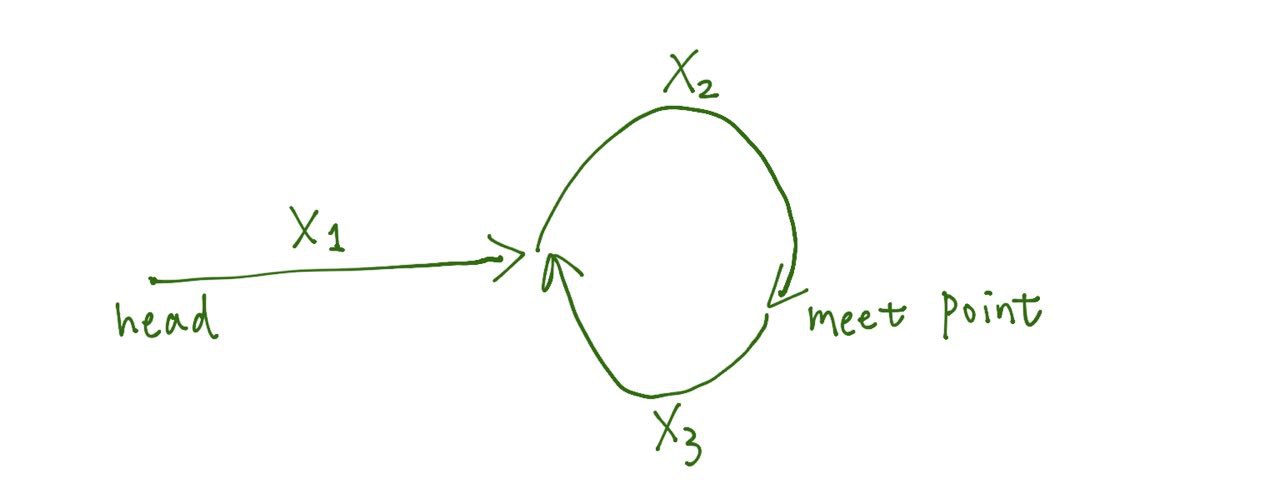 X2
X1
head
meet point
X3